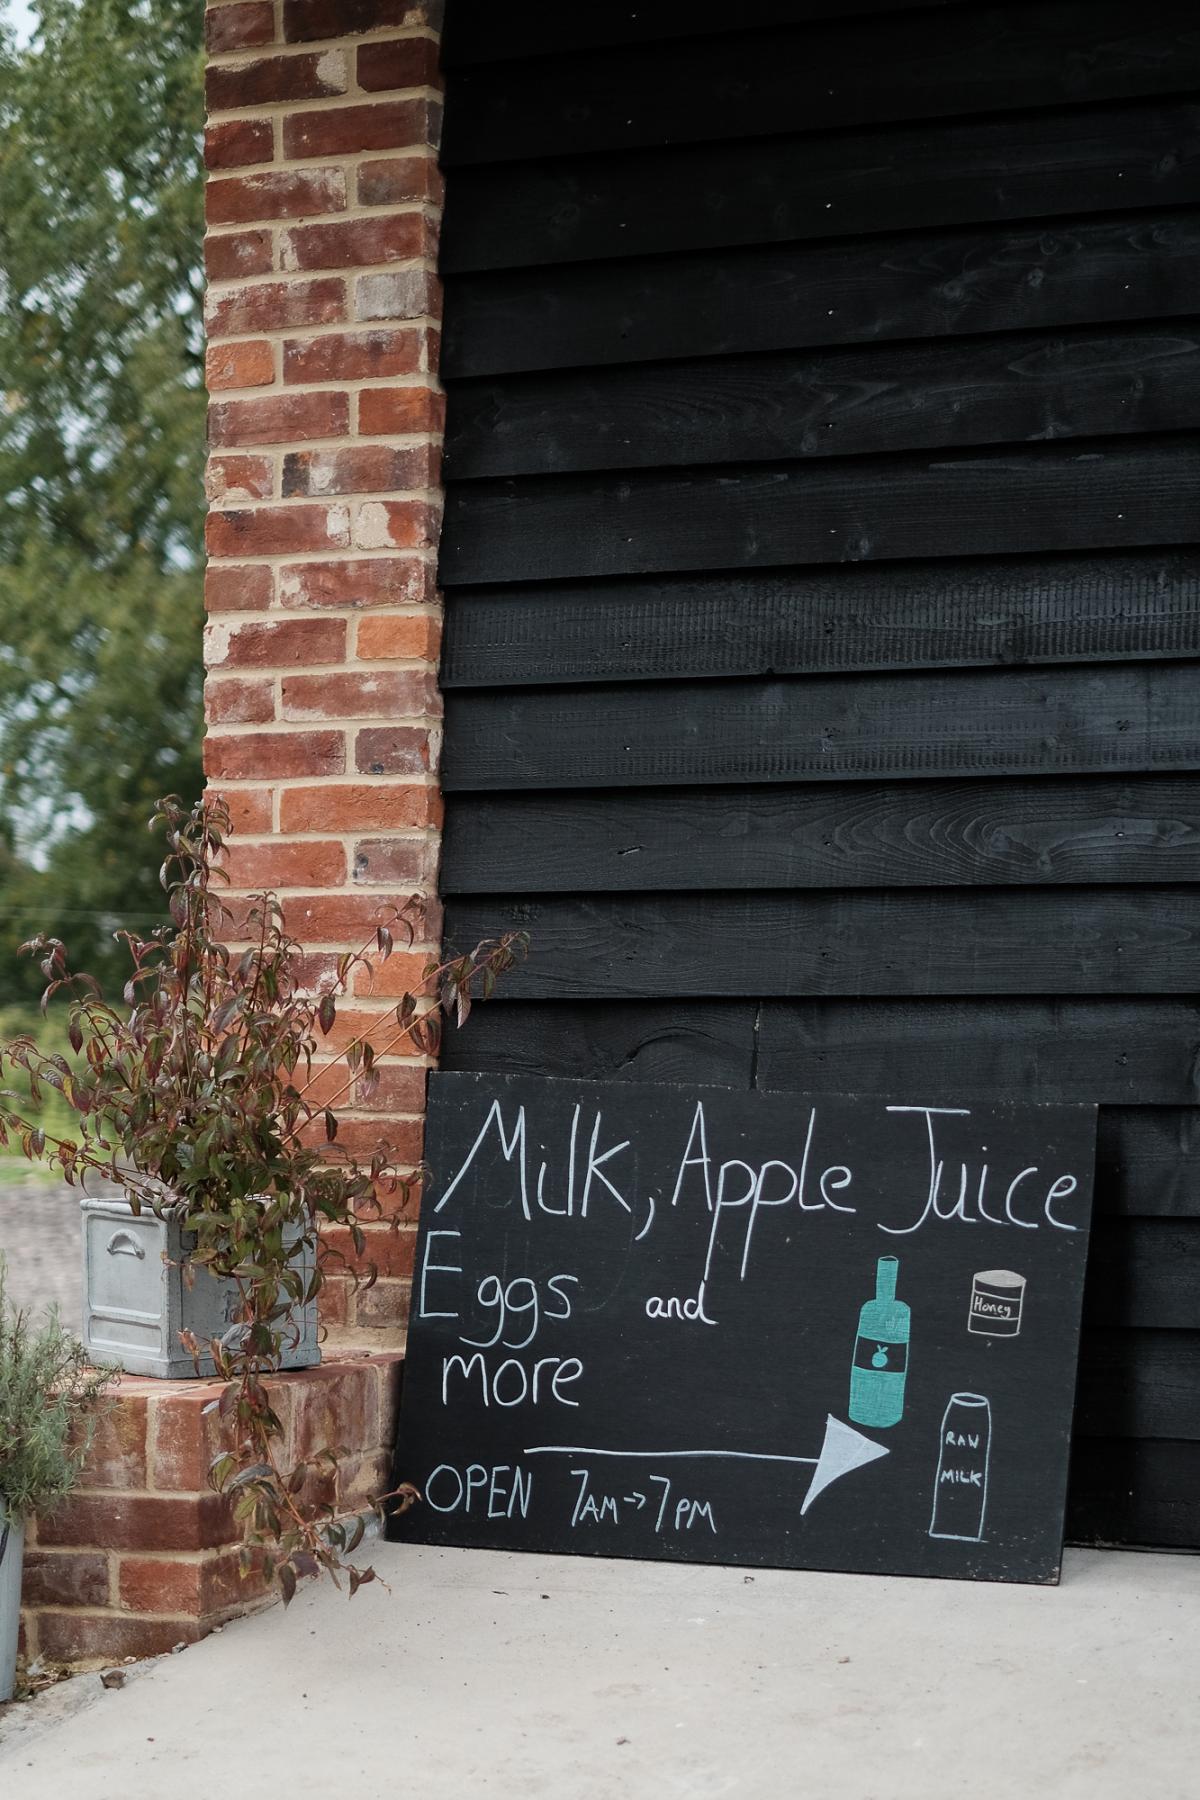 Milk, Apple Juice
Eggs and
more
Honey
RAW
MILK
OPEN 7AM→7PM